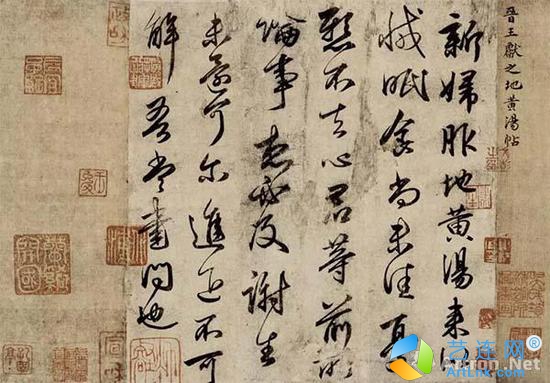 晉王獻之地黃湯帖
新婦服地黄湯来似
減眠食尚未佳憂
懸不去心君等前所
論事想必及謝生
未還可尔進退不可
解吾當書問也
艺连网®
Artlnk.Net